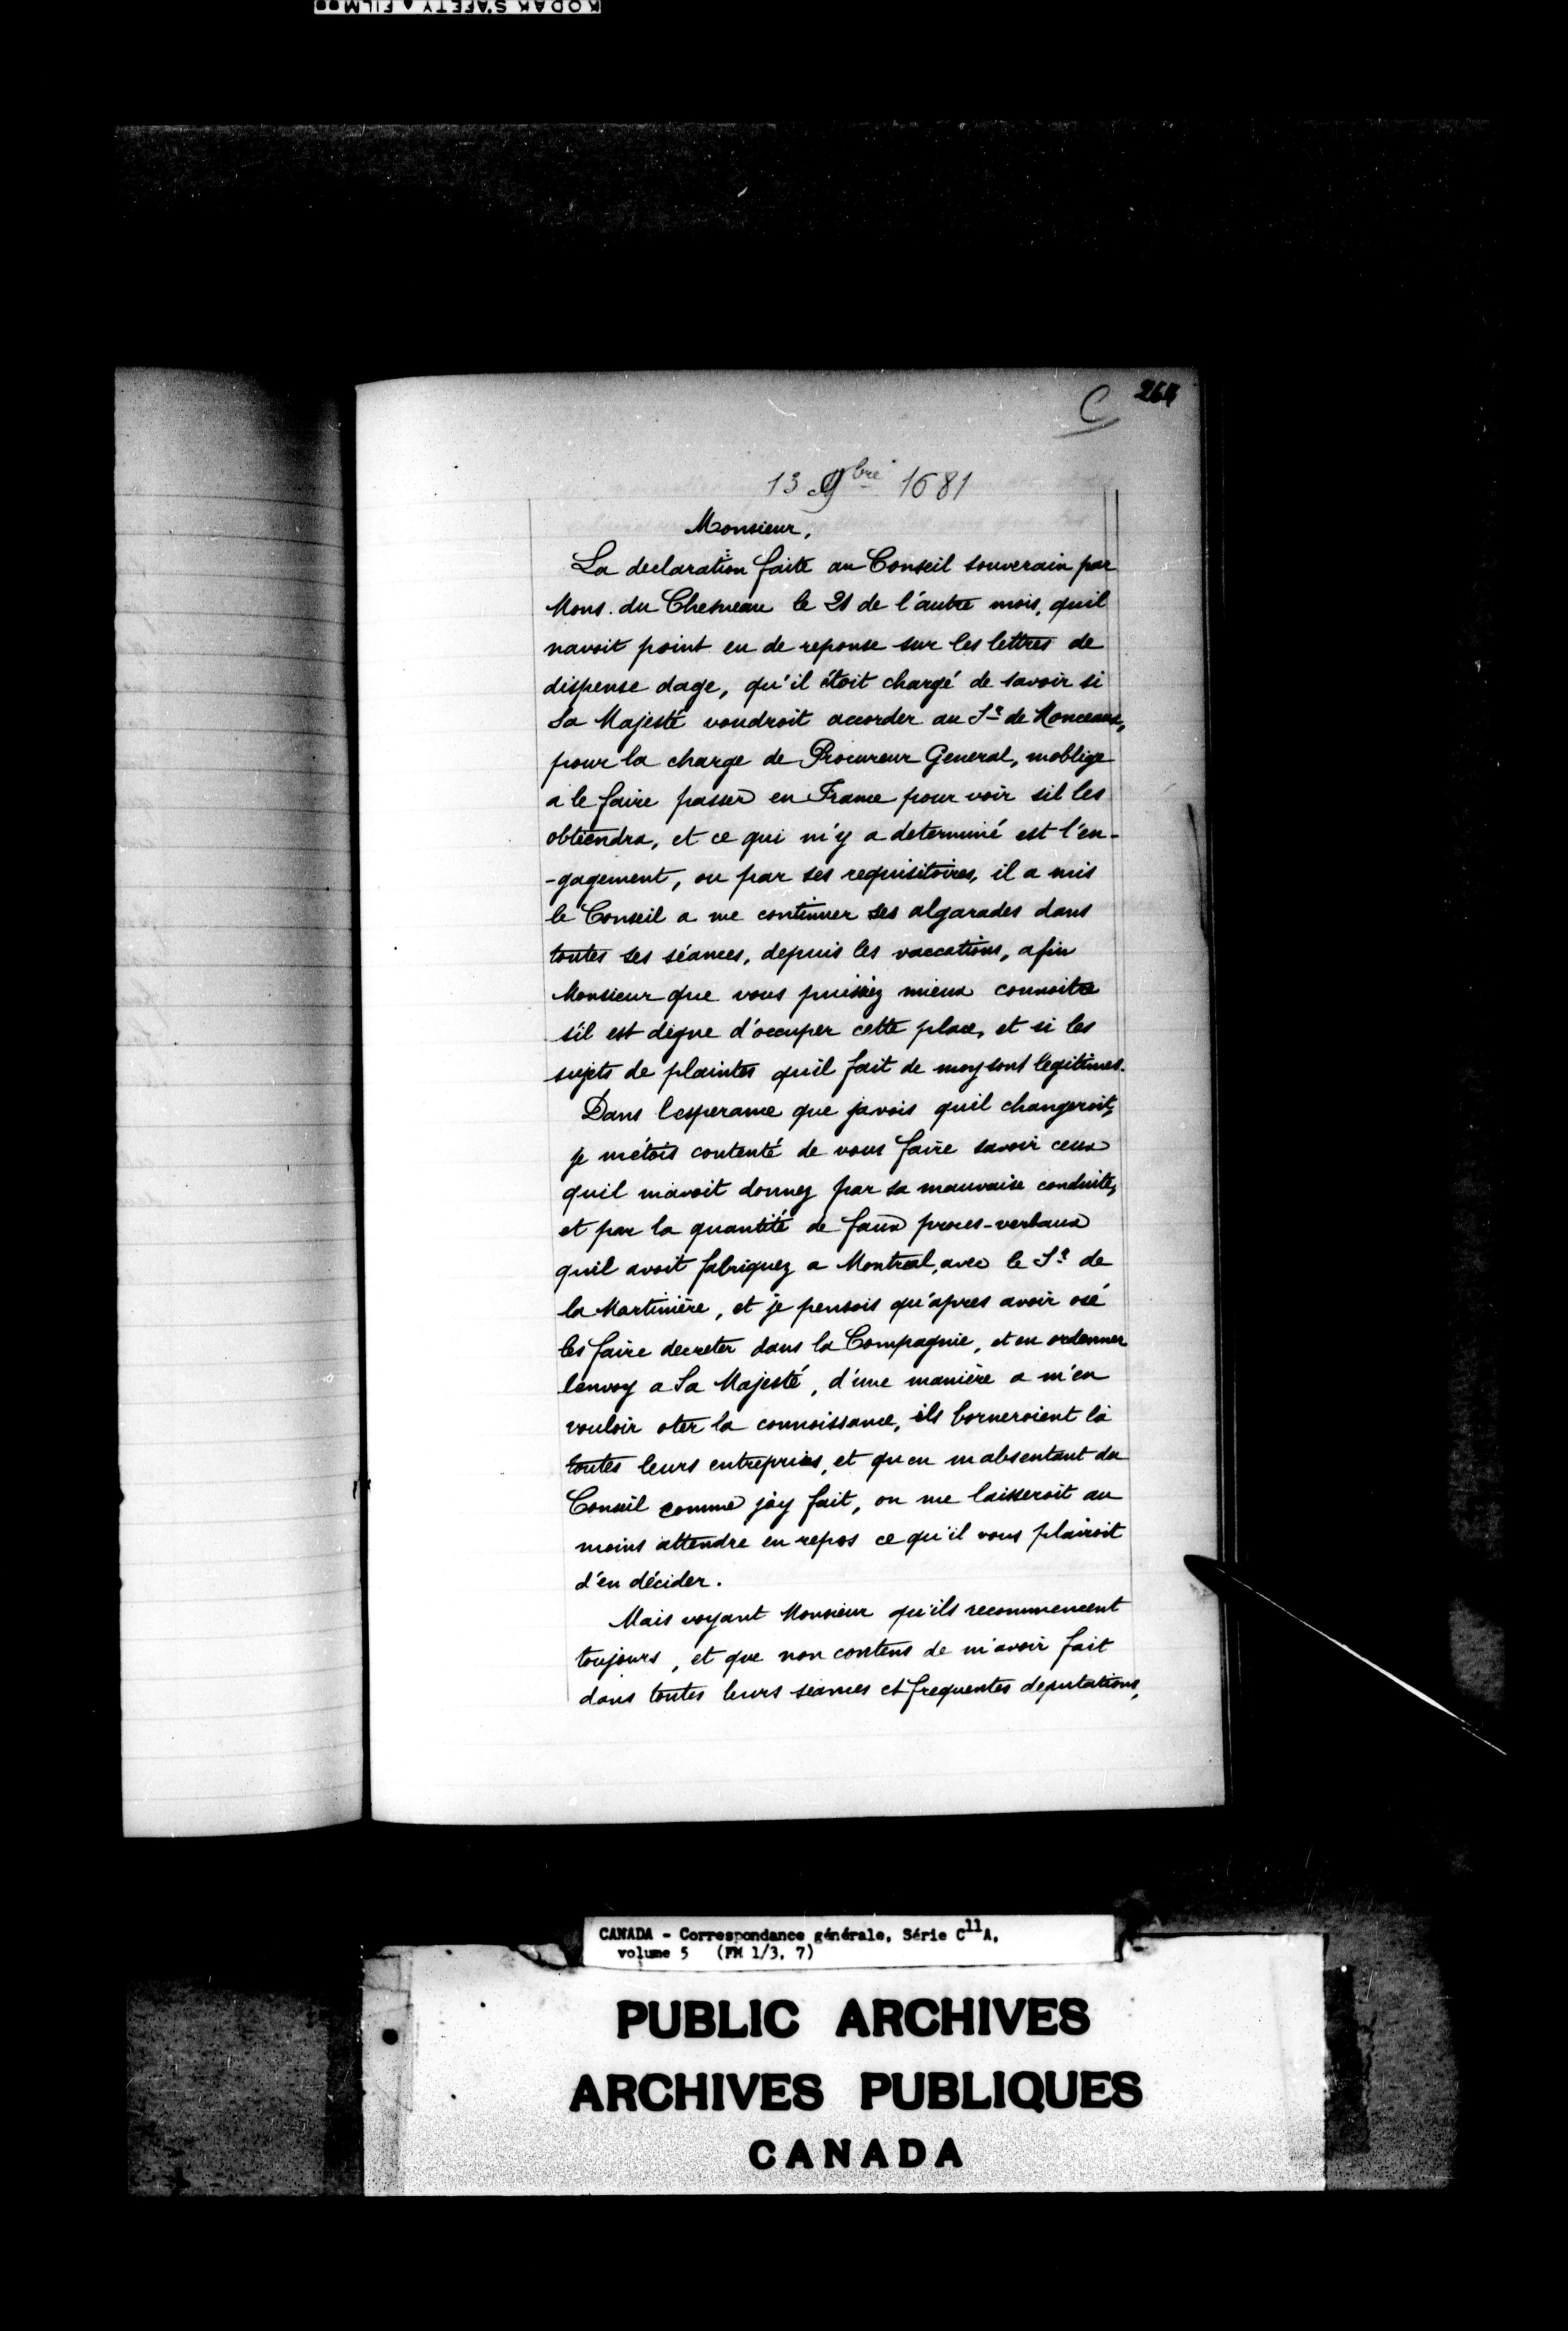 KODAK SAFETY FILM
C 264
13 9bre 1681
Monsieur,
La declaration faite au Conseil souverain par
Mons. du Chesneau le 21 de l'autre mois, quil
navoit point eu de reponse sur les lettres de
dispense dage, qu'il étoit chargé de savoir si
Sa Majesté voudroit accorder au Sr de Monceaux,
pour la charge de Procureur General, moblige
a le faire passer en France pour voir sil les
obtiendra, et ce qui m'y a determiné est l'en-
-gagement, ou par ses requisitoires, il a mis
le Conseil a me continuer ses algarades dans
toutes ses séances, depuis les vaccations, afin
Monsieur que vous puissiez mieux connoitre
s'il est digne d'occuper cette place, et si les
sujets de plaintes quil fait de moy sont legitimes.
Dans lesperance que javois quil changeroit,
je métois contenté de vous faire savoir ceux
quil m'avoit donnez par sa mauvaise conduite,
et par la quantité de faux proces-verbaux
quil avoit fabriquez a Montreal, avec le Sr de
la Martinière, et je pensois qu'apres avoir osé
les faire decreter dans la Compagnie, et en ordonner
lenvoy a Sa Majesté, d'une manière a m'en
vouloir oter la connoissance, ils borneroient là
toutes leurs entreprises, et qu'en m'absentant du
Conseil comme jay fait, on me laisseroit au
moins attendre en repos ce qu'il vous plairoit
d'en décider.
Mais voyant Monsieur qu'ils recommencent
toujours, et que non contens de m'avoir fait
dans toutes leurs séances et frequentes deputations,
CANADA - Correspondance générale, Série C11A,
volume 5 (FM 1/3, 7)
PUBLIC ARCHIVES
ARCHIVES PUBLIQUES
CANADA